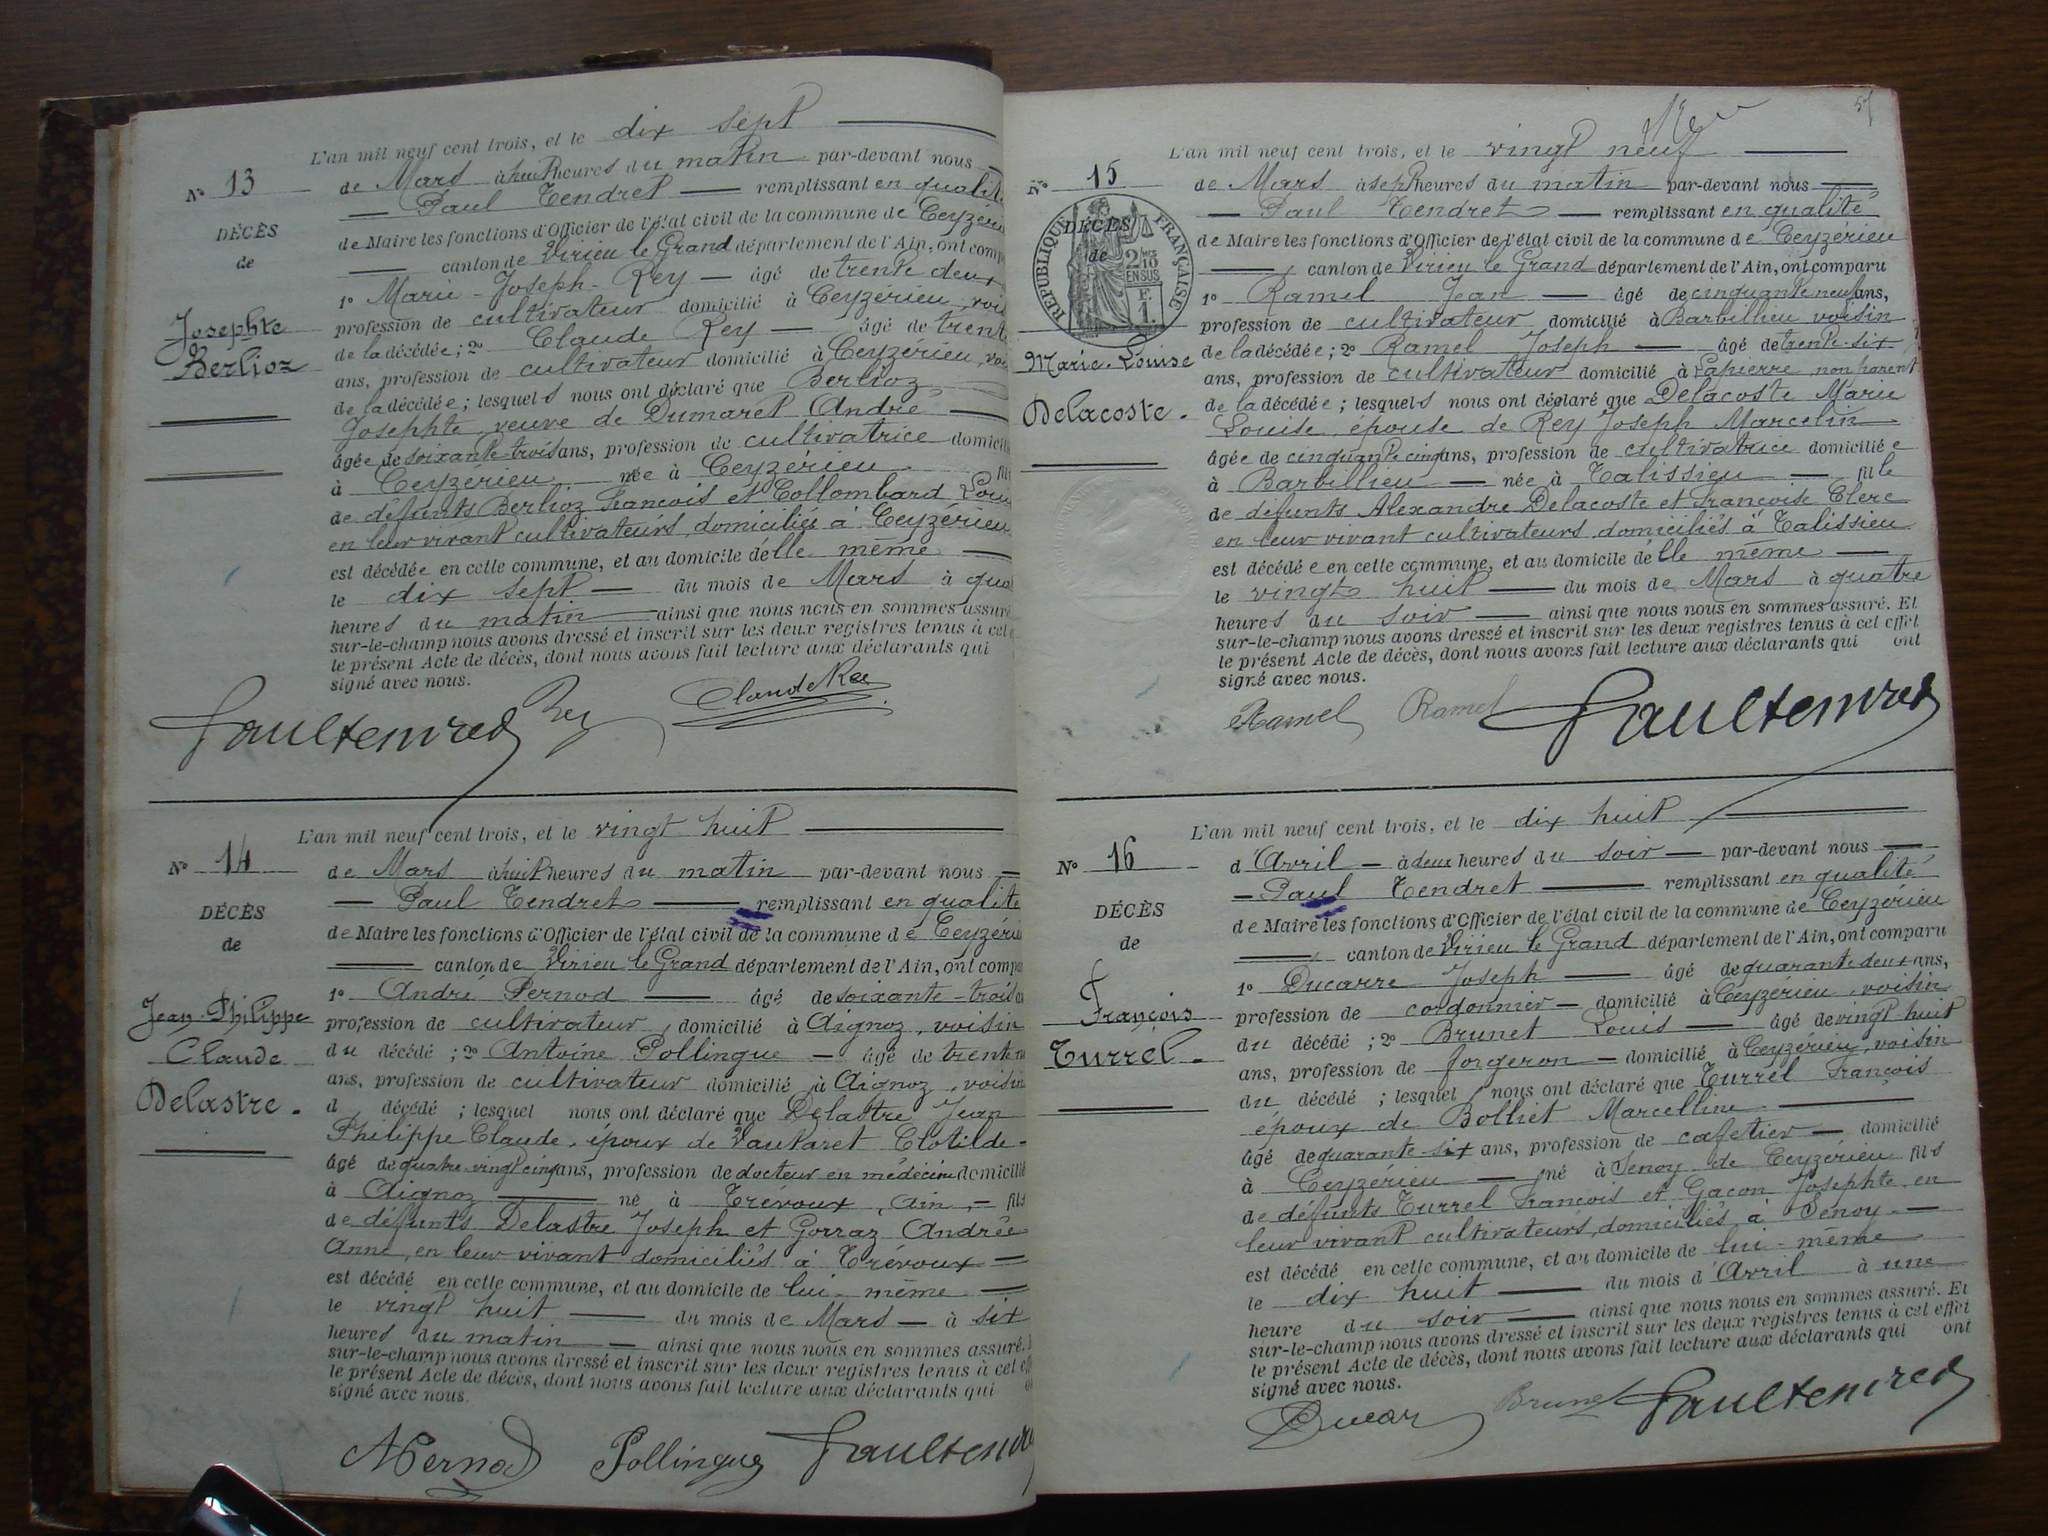 L'an mil neuf cent trois, et le dix sept
N° 13
de Mars à huit heures du matin par-devant nous
Paul Tendret remplissant en qualité
DÉCÈS
de Maire les fonctions d'Officier de l'état civil de la commune de Ceyzérieu
de
canton de Virieu le Grand département de l'Ain, ont comp
1° Marie-Joseph Rey âgé de trente deux
Josephte
profession de cultivateur domicilié à Ceyzérieu, vois
Berlioz
de la décédée ; 2° Claude Rey âgé de trente
ans, profession de cultivateur domicilié à Ceyzérieu, voi
de la décédée ; lesquels nous ont déclaré que Berlioz
Josephte, veuve de Dumaret André
âgée de soixante-trois ans, profession de cultivatrice domicili
à Ceyzérieu née à Ceyzérieu fil
de défunts Berlioz François et Collombard Loui
en leur vivant cultivateurs, domiciliés à Ceyzérieu
est décédée en cette commune, et au domicile d'elle même
le dix sept du mois de Mars à qua
heures du matin ainsi que nous nous en sommes assuré
sur-le-champ nous avons dressé et inscrit sur les deux registres tenus à cet e
le présent Acte de décès, dont nous avons fait lecture aux déclarants qui
signé avec nous.
Paul Tendret Rey Claude Rey
L'an mil neuf cent trois, et le vingt huit
N° 14
de Mars à huit heures du matin par-devant nous
Paul Tendret remplissant en qualité
DÉCÈS
de Maire les fonctions d'Officier de l'état civil de la commune de Ceyzérie
de
canton de Virieu le Grand département de l'Ain, ont compa
1° André Pernod âgé de soixante-trois a
Jean-Philippe
profession de cultivateur, domicilié à Aignoz, voisin
Claude
du décédé ; 2° Antoine Pollingue âgé de trente
ans, profession de cultivateur domicilié à Aignoz, voisin
Delastre.
d décédé ; lesquel nous ont déclaré que Delastre Jean
Philippe Claude, époux de Vautaret Clotilde
âgé de quatre-vingt cinq ans, profession de docteur en médecine domicilié
à Aignoz né à Trévoux, Ain, fils
de défunts Delastre Joseph et Gorraz Andrée
Anne, en leur vivant domiciliés à Trévoux
est décédé en cette commune, et au domicile de lui-même
le vingt huit du mois de Mars à six
heures du matin ainsi que nous nous en sommes assuré.
sur-le-champ nous avons dressé et inscrit sur les deux registres tenus à cet eff
le présent Acte de décès, dont nous avons fait lecture aux déclarants qui
signé avec nous.
APernod Pollingue Paul Tendre
57
L'an mil neuf cent trois, et le vingt neuf
N° 15
de Mars à sept heures du matin par-devant nous
Paul Tendret remplissant en qualité
RÉPUBLIQUE FRANÇAISE
DÉCÈS
de
2/10 EN SUS
F. 1.
de Maire les fonctions d'Officier de l'état civil de la commune de Ceyzérieu
canton de Virieu le Grand département de l'Ain, ont comparu
1° Ramel Jean âgé de cinquante neuf ans,
profession de cultivateur domicilié à Barbillieu voisin
Marie-Louise
de la décédée ; 2° Ramel Joseph âgé de trente-six
ans, profession de cultivateur domicilié à Lapierre, non parent
Delacoste.
de la décédée ; lesquels nous ont déclaré que Delacoste Marie
Louise, épouse de Rey Joseph Marcelin
âgée de cinquante cinq ans, profession de cultivatrice domiciliée
à Barbillieu née à Talissieu fille
de défunts Alexandre Delacoste et Françoise Clerc
en leur vivant cultivateurs, domiciliés à Talissieu
est décédée en cette commune, et au domicile d'elle même
le vingt huit du mois de Mars à quatre
heures du soir ainsi que nous nous en sommes assuré. Et
sur-le-champ nous avons dressé et inscrit sur les deux registres tenus à cet effet
le présent Acte de décès, dont nous avons fait lecture aux déclarants qui ont
signé avec nous.
Ramel Ramel Paul Tendret
L'an mil neuf cent trois, et le dix huit
N° 16
d'Avril à deux heures du soir par-devant nous
Paul Tendret remplissant en qualité
DÉCÈS
de Maire les fonctions d'Officier de l'état civil de la commune de Ceyzérieu
de
canton de Virieu le Grand département de l'Ain, ont comparu
1° Ducarre Joseph âgé de quarante deux ans,
François
profession de cordonnier domicilié à Ceyzérieu, voisin
Turrel.
du décédé ; 2° Brunet Louis âgé de vingt-huit
ans, profession de forgeron domicilié à Ceyzérieu, voisin
du décédé ; lesquel nous ont déclaré que Turrel François
époux de Bolliet Marcelline
âgé de quarante-six ans, profession de cafetier domicilié
à Ceyzérieu né à Senoy de Ceyzérieu fils
de défunts Turrel François et Gacon Josephte, en
leur vivant cultivateurs, domiciliés à Senoy
est décédé en cette commune, et au domicile de lui-même
le dix huit du mois d'Avril à une
heure du soir ainsi que nous nous en sommes assuré. Et
sur-le-champ nous avons dressé et inscrit sur les deux registres tenus à cet effet
le présent Acte de décès, dont nous avons fait lecture aux déclarants qui ont
signé avec nous.
Ducar Brunet Paul Tendret